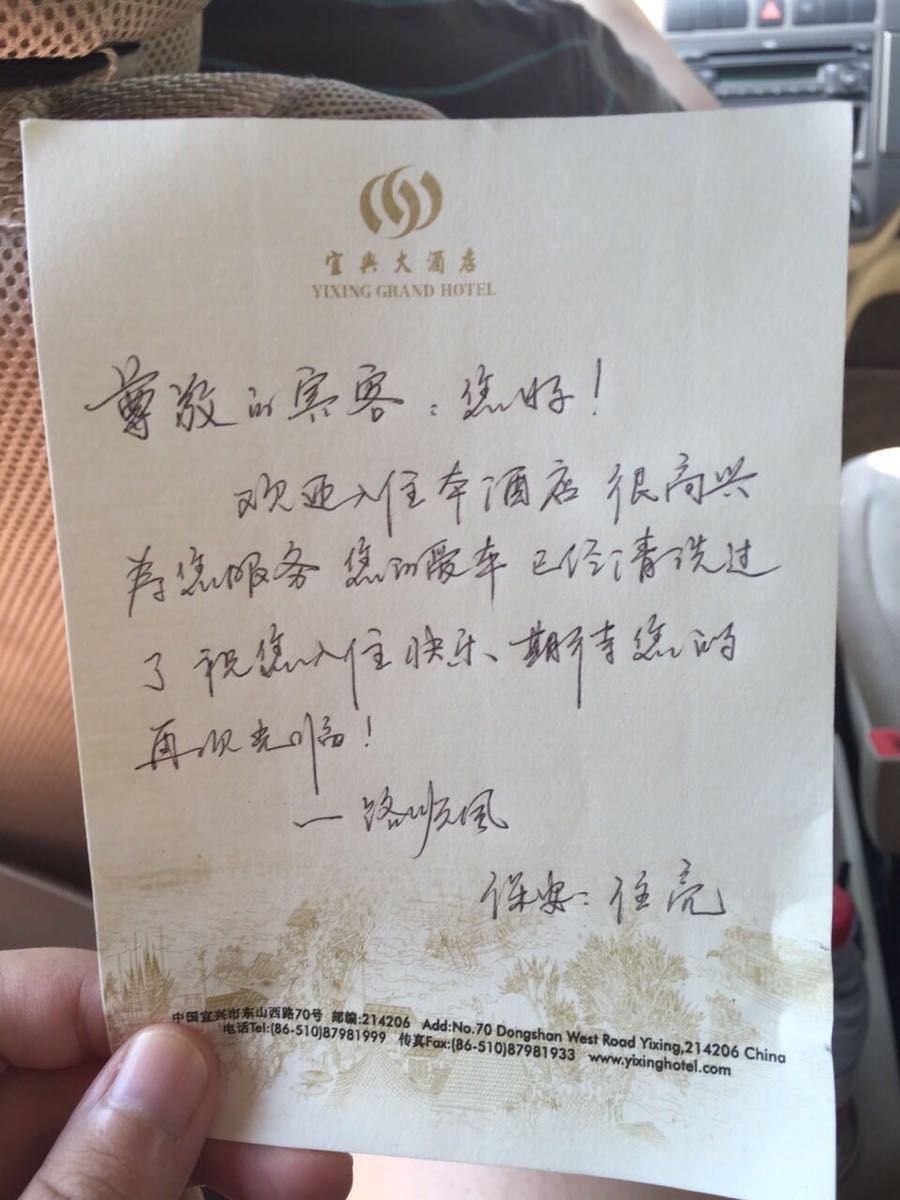 宜兴大酒店
YIXING GRAND HOTEL
尊敬的宾客：您好！
欢迎入住本酒店 很高兴
为您服务 您的爱车 已经清洗过
了 祝您入住快乐、期待您的
再次光临！
一路顺风
保安：任亮
中国宜兴市东山西路70号 邮编:214206 Add:No.70 Dongshan West Road Yixing,214206 China
电话Tel:(86-510)87981999 传真Fax:(86-510)87981933 www.yixinghotel.com